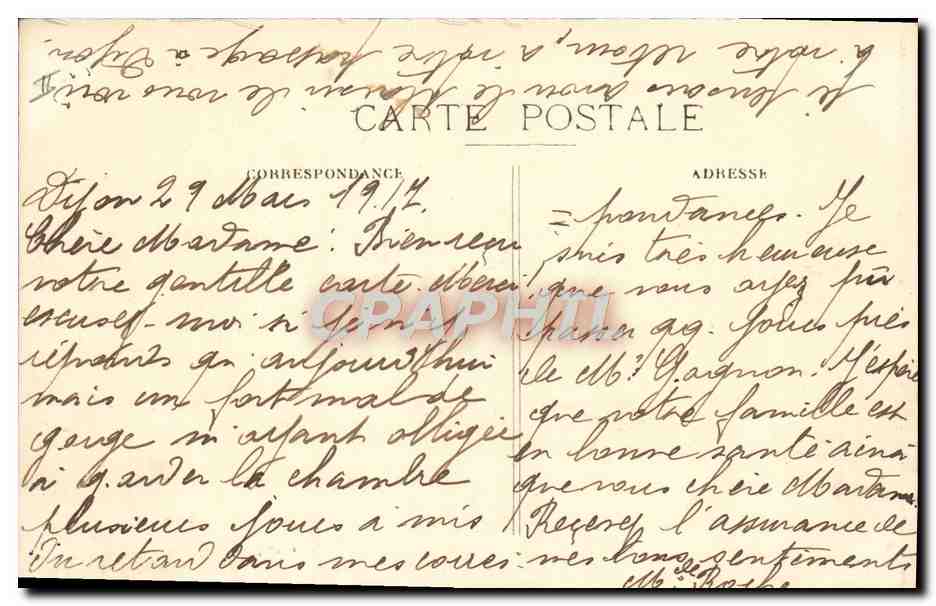 CARTE POSTALE
CORRESPONDANCE
Dijon 29 Mars 1917.
Chère Madame! Bien reçu
votre gentille carte. Merci
excusez-moi si je ne
réponds qu'aujourd'hui
mais un fort mal de
gorge m'ayant obligée
à garder la chambre
plusieurs jours a mis
du retard dans mes corres-
ADRESSE
= pondances. Je
suis très heureuse
que vous ayez pu
passer qq. jours près
de Mr Gagnon. J'espère
que votre famille est
en bonne santé ainsi
que vous chère Madame.
Recevez l'assurance de
mes bons sentiments
Mlle Roche
Si pensons avoir le plaisir de vous voir
à votre retour, à votre passage à Dijon.
II
CPARHTI